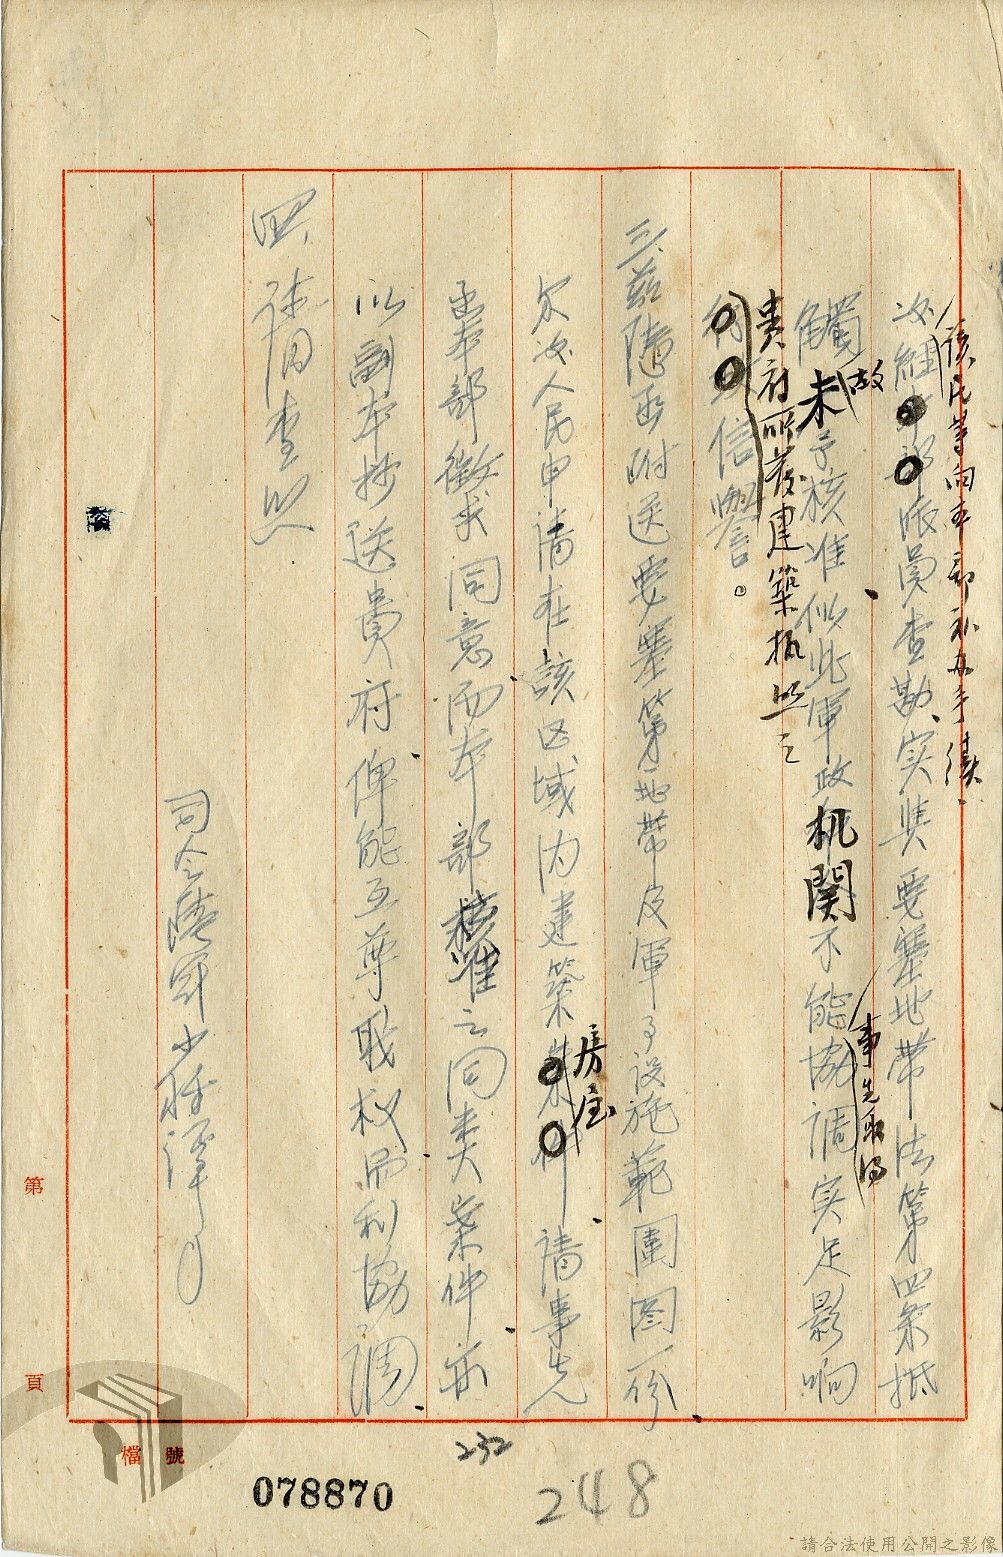 該民等向本部補办手續、
次經本部派員查勘、实與要塞地帶法第四条抵
觸故未予核准似此軍政机関不能事先取得協調实足影响
貴府所發建築执照之
信譽。
三、茲隨函附送要塞第地帶及軍事設施範圍图一份
尔後人民申請在該区域內建築房屋請事先
函本部徵求同意而本部核准之同类案件亦
以副本抄送貴府俾能互尊职权而利協調
四、請查照
司令陸軍少将
第
頁
檔 號
078870
232
248
請合法使用公開之影像